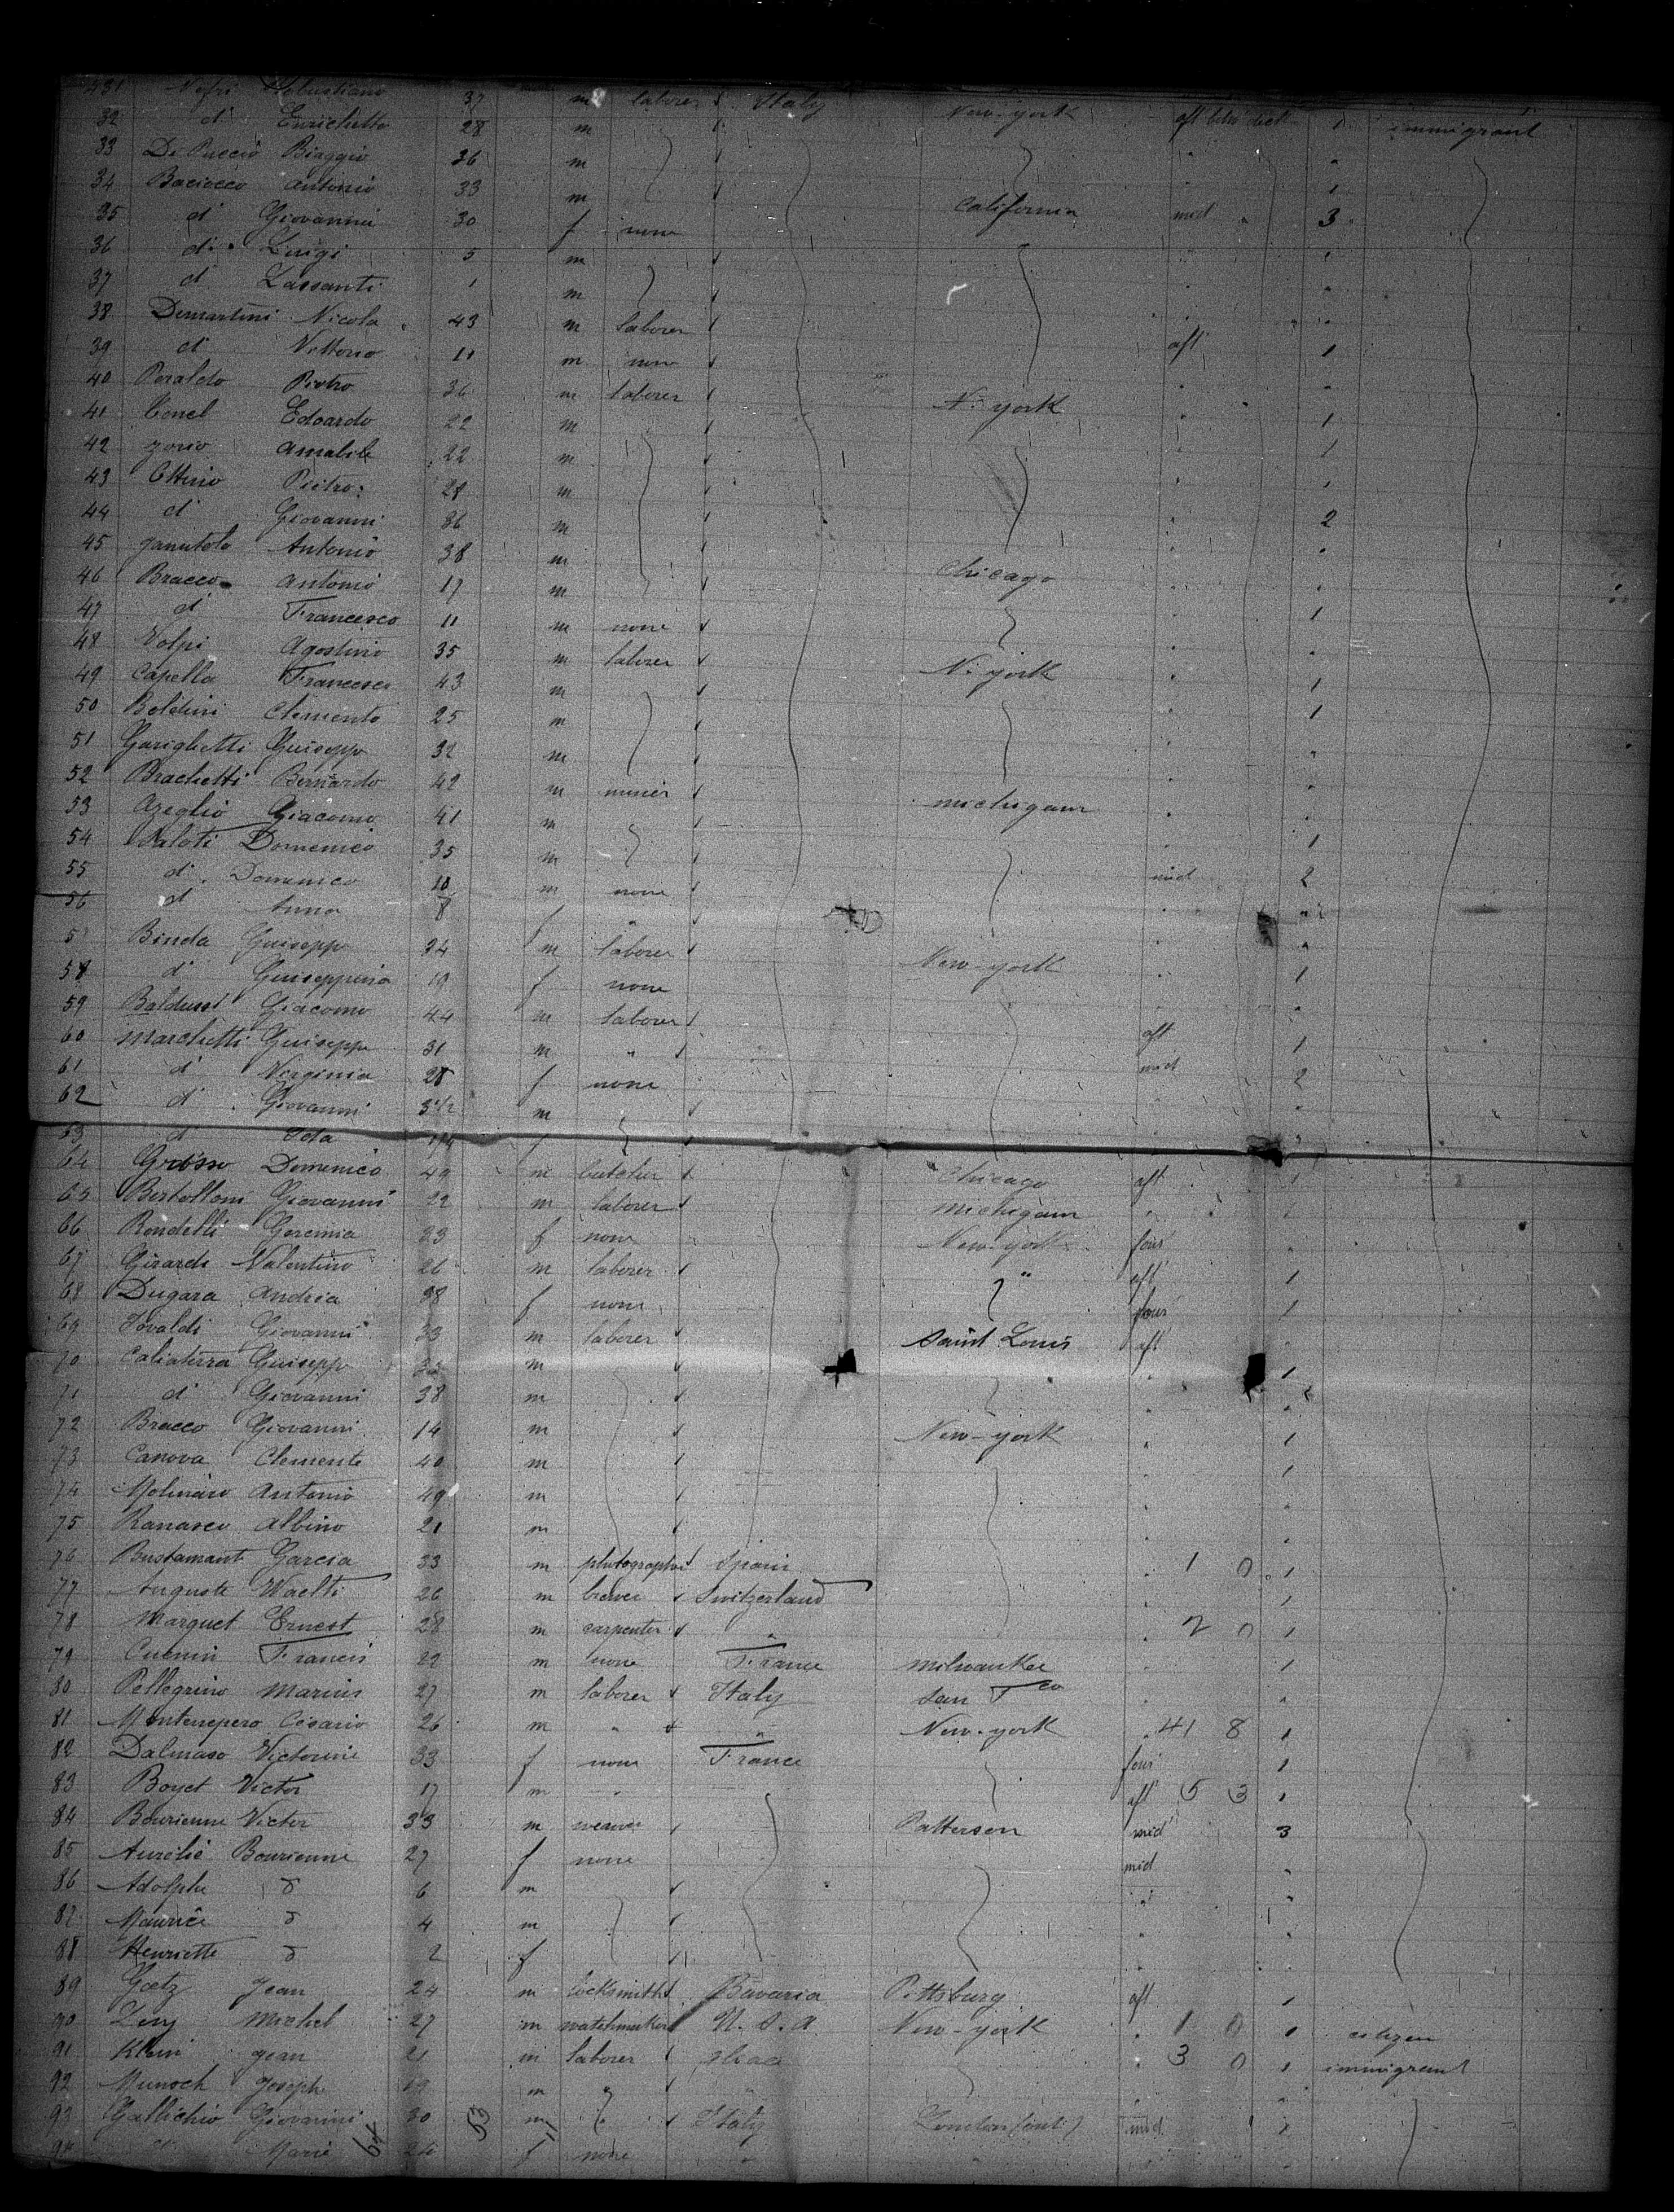 431 Nefri Sebastiano 37 m laborer Italy New-york aft betw deck 1 immigrant
32 d Enrichetto 28 m
33 De Puccio Biaggio 36 m
34 Baciocco Antonio 33 m California mid 3
35 d Giovannni 30 f none
36 d Luigi 5 m
37 d 1 m
38 Demartini Nicola 43 m laborer aft 1
39 d Vittorio 11 m none
40 Peraldo Pietro 36 m laborer N. york 1
41 Conel Edoardo 22 m 1
42 Amabile 22 m
43 Ottino Pietro 28 m 2
44 d Giovanni 36 m
45 Janutolo Antonio 38 m Chicago
46 Bracco Antonio 17 m 1
47 d Francesco 11 m none
48 Volpi Agostino 35 m laborer N. york 1
49 Capella Francesco 43 m 1
50 Boldini Clemento 25 m
51 Garighetti Guiseppe 32 m
52 Brachetti Bernardo 42 m miner michigam
53 Azeglio Giacomo 41 m 1
54 Domenico 35 m mid 2
55 d Domenico 10 m none
56 d Anna 8 f "
57 Binda Guiseppe 34 m laborer New-york 1
58 d Guiseppina 19 f none
59 Balducci Giacomo 44 m laborer aft 1
60 Marchetti Guiseppe 31 m " mid 2
61 d Virginia 28 f none
62 d Giovanni 3 1/2 m
63 d Ida f
64 Grosso Domenico 49 m butcher Chicago aft 1
65 Bertolloni Giovanni 22 m laborer michigam
66 Rondelli Geremia 33 f none New-york four
67 Girardi Valentino 26 m laborer " aft 1
68 Dugara Andria 38 f none four 1
69 Tovaldi Giovanni 33 m laborer Saint Louis aft
70 Caliaterra Guiseppe 32 m 1
71 d Giovanni 38 m
72 Bracco Giovanni 14 m New-york 1
73 Canova Clemente 40 m 1
74 Molinaro Antonio 49 m
75 Ranasco Albino 21 m
76 Bustamante Garcia 33 m photographer Spain 1 0 1
77 Auguste Waelti 26 m Switzerland 1
78 Marquet Ernest 28 m carpenter " 2 0 1
79 Cuenin Francis 22 m none France Milwaukee 1
80 Pellegrino Marius 27 m laborer Italy San Fco
81 Montenepero Cesario 26 m " " New-york 41 8 1
82 Dalmaso Victorine 33 f none France four 1
83 Boyet Victor 17 m " aft 5 3 1
84 Bourienne Victor 33 m weaver Patterson mid 3
85 Aurélie Bourienne 27 f none mid
86 Adolphe d 6 m
87 Maurice d 4 m
88 Henriette d 2 f
89 Goetz Jean 24 m locksmith Bavaria Pittsburg aft 1
90 Michel 27 m watchmaker U. S. A. New-york 1 0 1 citizen
91 Klein Jean 21 m laborer 3 0 1 immigrant
92 Munoch Joseph 19 m "
93 Gallichio Giovanni 30 m " Italy mid
94 d Marie 24 f none "
64 53 11